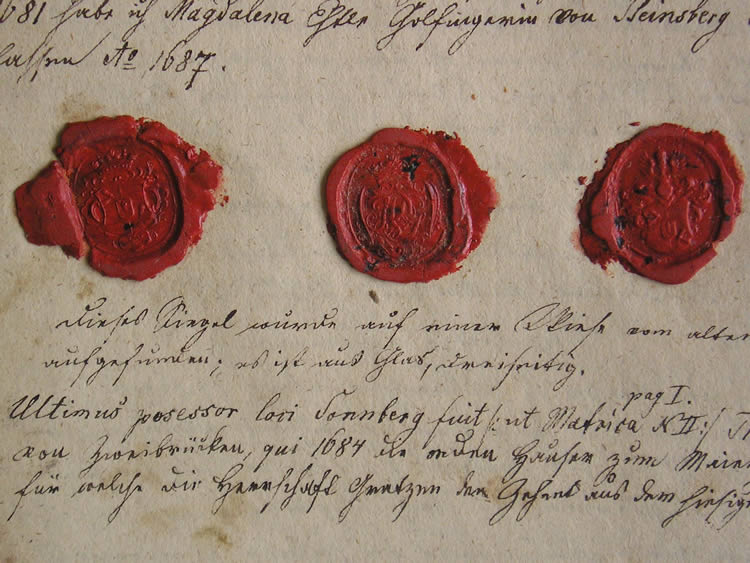 1681 habe ich Magdalena Ester Golfingerin von Steinsberg
lassen Ao 1687.
Dieses Siegel wurde auf einer Wiese vom alten
aufgefunden; es ist aus Glas, dreiseitig.
pag I.
Ultimus posessor loci Sonnberg fuit /: ut Matrica N II :/
von Zweibrücken, qui 1684 die öden Häuser zum Maier
für welche die Herrschaft Gratzen den Zehent aus dem hiesigen